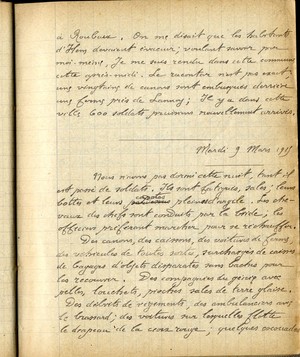 à Roubaix. On me disait que les habitants
d'Hem devaient évacuer; voulant savoir par
moi-même. Je me suis rendu dans cette commune
cette après-midi. Le racontar n'est pas exact:
une vingtaine de canons sont embusqués derrière
une ferme près de Lannoy; Il y a dans cette
ville 600 soldats prussiens nouvellement arrivés.
Mardi 9 Mars 1915
Nous n'avons pas dormi cette nuit, tant il
est passé de soldats. Ils sont fatigués, sales; leurs
capotes
bottes et leurs pleines d'argile. Les che-
vaux des chefs sont conduits par la bride; les
officiers préférant marcher pour se réchauffer.
Des canons, des caissons, des voitures de foin,
des véhicules de toutes sortes, surchargés de caisses
de bagages d'objets disparates sans bâches pour
les recouvrir. Des compagnies du génie avec
pelles, louchets, pioches sales de terre glaise.
Des débris de régiments, des ambulanciers avec
le brassard; des voitures sur lesquelles flotte
le drapeau de la croix rouge; quelques